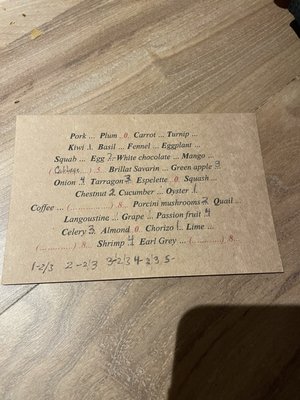 Pork ... Plum .0. Carrot ... Turnip ...
Kiwi .1. Basil ... Fennel ... Eggplant ...
Squab ... Egg 1.. White chocolate ... Mango ...
(Cabbage...) .5. Brillat Savarin ... Green apple 3
Onion .4. Tarragon 3 Espelette .0. Squash ...
Chestnut 2 Cucumber ... Oyster 1
Coffee ... (............) .8... Porcini mushrooms 2 Quail ...
Langoustine ... Grape ... Passion fruit 4
Celery 3. Almond .0. Chorizo 1.. Lime ...
(............) .8... Shrimp .4. Earl Grey ... (............) .8.
1-2/3 2-2/3 3-2/3 4-2/3 5-